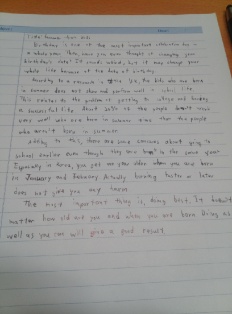 life because
Birthday is one of the most important information for in
a whole year. Then, have you ever thought of changing your
birthday's date? It sounds weird, but it may change your
whole life because of the date of birthday
According to a research, the kids who are born
in summer does not show and perform well in school life.
This relates to the problem of getting to college and
a successful life. About 30% of the people don't work
very well who are born in summer rather than the people
who aren't born in summer
Adding to this, there are some concerns about going to
school earlier even though they are born in the same year
Especially in Korea, you get one year older when you are born
in January and February. Actually, learning faster or later
does not give you any harm
The most important thing is, doing best. It doesn't
matter how old are you and when you are born. Doing as
well as you can will give a good result